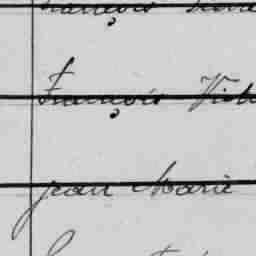 François
François Vict
Jean Marie